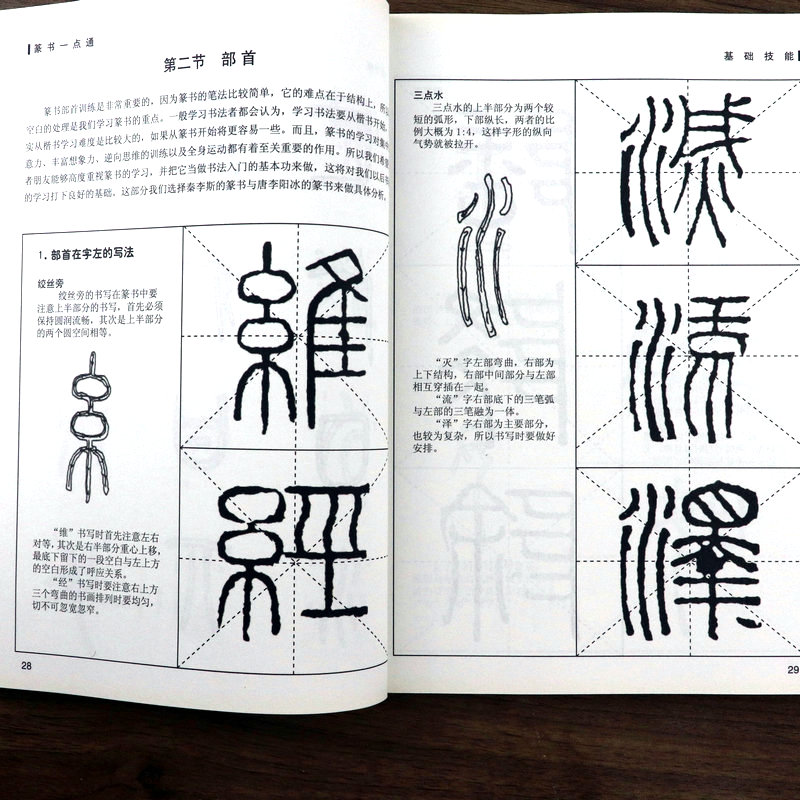 篆书一点通
第二节 部首
篆书部首训练是非常重要的，因为篆书的笔法比较简单，它的难点在于结构上，所以
空白的处理是我们学习篆书的重点。一般学习书法者都会认为，学习书法要从楷书开始，
实从楷书学习难度是比较大的，如果从篆书开始将更容易一些。而且，篆书的学习对集中
意力、丰富想象力、逆向思维的训练以及全身运动都有着至关重要的作用。所以我们希望
者朋友能够高度重视篆书的学习，并把它当做书法入门的基本功来做，这将对我们以后书
的学习打下良好的基础。这部分我们选择秦李斯的篆书与唐李阳冰的篆书来做具体分析。
1. 部首在字左的写法
绞丝旁
绞丝旁的书写在篆书中要
注意上半部分的书写，首先必须
保持圆润流畅，其次是上半部分
的两个圆空间相等。
維
“维”书写时首先注意左右
对等，其次是右半部分重心上移，
最底下留下的一段空白与左上方
的空白形成了呼应关系。
“经”书写时要注意右上方
三个弯曲的书画排列时要均匀，
切不可忽宽忽窄。
經
28
基础技能
三点水
三点水的上半部分为两个较
短的弧形，下部纵长，两者的比
例大概为 1:4，这样字形的纵向
气势就被拉开。
滅
“灭”字左部弯曲，右部为
上下结构，右部中间部分与左部
相互穿插在一起。
“流”字右部底下的三笔弧
与左部的三笔融为一体。
“泽”字右部为主要部分，
也较为复杂，所以书写时要做好
安排。
流
澤
29